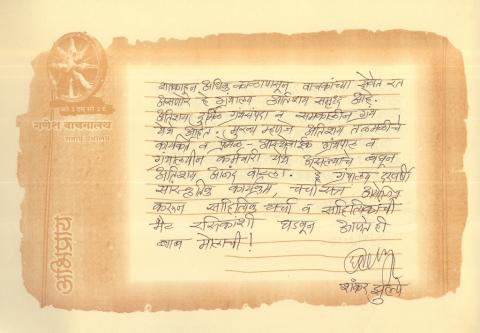 गणेश वाचनालय
अभिप्राय
शतकाहून अधिक काळापासून वाचकांच्या सेवेत रत
असणारे हे ग्रंथालय अतिशय समृद्ध आहे.
अतिशय दुर्मिळ ग्रंथसंपदा व समकालीन ग्रंथ
येथे आहेत. मुख्य म्हणजे अतिशय तळमळीचे
कार्यकर्ते व ग्रंथपाल व
ग्रंथालयीन कर्मचारी येथे असल्याचे बघून
अतिशय आनंद वाटला. हे ग्रंथालय दरवर्षी
सांस्कृतिक कार्यक्रम, चर्चासत्र आयोजित
करून साहित्यिक चर्चा व साहित्यिकांची
भेट रसिकांशी घडवून आणते ही
बाब मोलाची!
शंकर